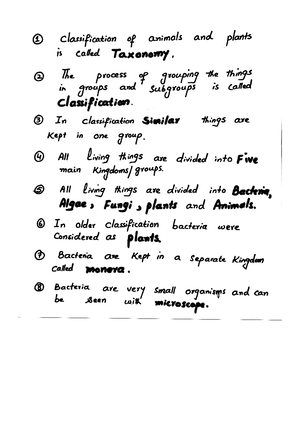 ① Classification of animals and plants
is called Taxonomy.
② The process of grouping the things
in groups and Subgroups is called
Classification.
③ In classification Similar things are
Kept in one group.
④ All living things are divided into Five
main Kingdoms/groups.
⑤ All living things are divided into Bacteria,
Algae, Fungi, plants and Animals.
⑥ In older classification bacteria were
Considered as plants.
⑦ Bacteria are Kept in a separate Kingdom
called monera.
⑧ Bacteria are very small organisms and can
be seen with microscope.